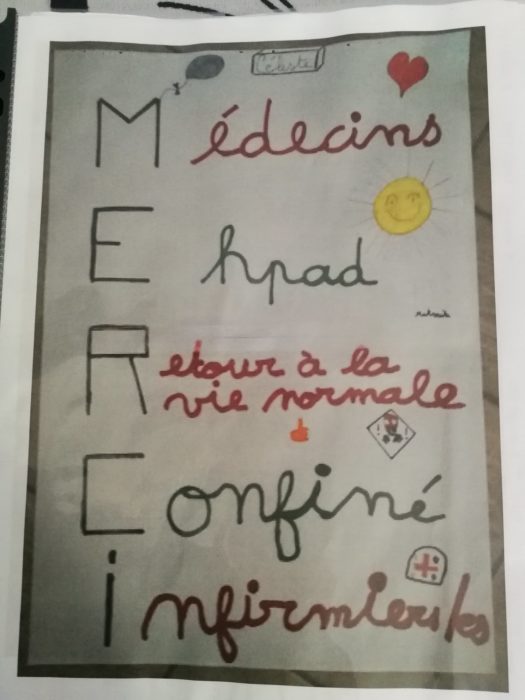 Céleste
Médecins
Ehpad
Retour à la
vie normale
Confiné
infirmiers/es